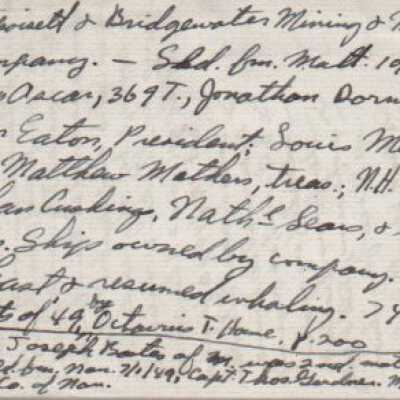 & Bridgewater Mining &
mpany. — Sld. fm. Matt.
Oscar, 369 T., Jonathan
Eaton, President; Louis
Matthew Mathers, treas.; N.H.
Cushing, Nathl Sears, &
. Ships owned by company.
east & resumed whaling. 74
ts of '49, by Octavius T. Howe, p. 200
Joseph Bates of M. was 2nd mate
fm. Nan. 7/1/49, Capt. Thos. Gardner.
Co. of Nan.